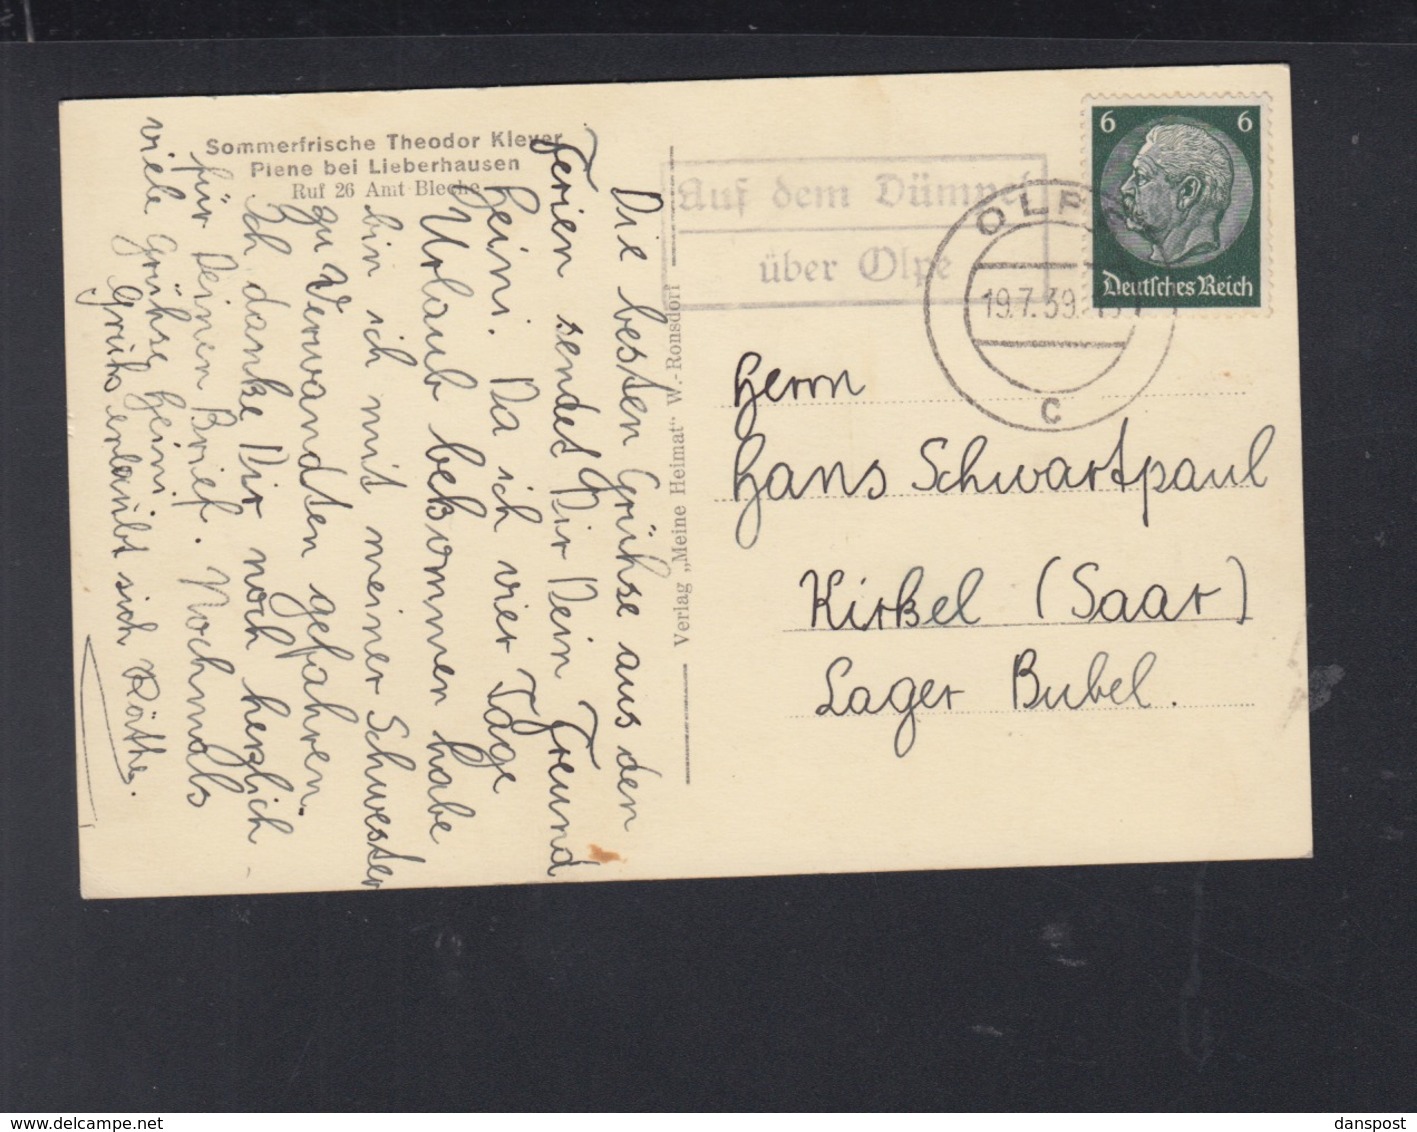 Sommerfrische Theodor Klever
Piene bei Lieberhausen
Ruf 26 Amt Bleche
Die besten Grühse aus den
Ferien sendet Dir Dein Freund
Heini. Da ich vier Tage
Urlaub bekommen habe
bin ich mit meiner Schwester
zu Verwandten gefahren.
Ich danke Dir noch herzlich
für Deinen Brief. Nochmals
viele Grühse Heini
Gruhs erlaubt sich Käthe.
Verlag „Meine Heimat“ W.-Ronsdorf
Auf dem Dümpel
über Olpe
OLPE
19.7.39.
c
6 6
Deutsches Reich
Herrn
Hans Schwartpaul
Kirkel (Saar)
Lager Bubel.
delcampe.net
danspost